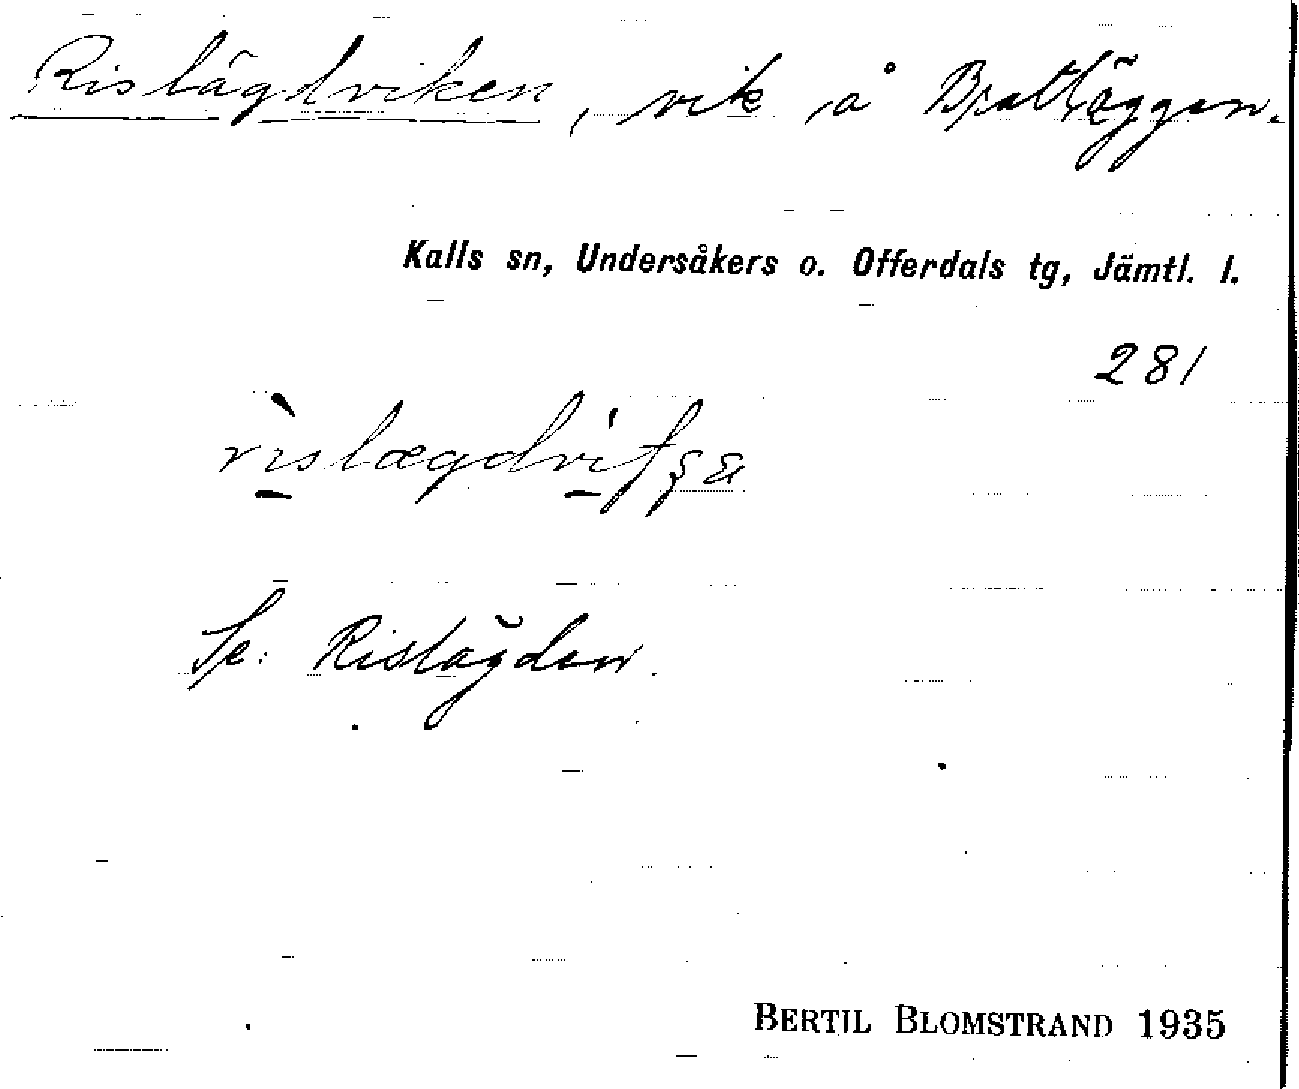 Rislägdviken, vik å Brattläggen.
Kalls sn, Undersåkers o. Offerdals tg, Jämtl. l.
281
Se: Rislägden.
BERTIL BLOMSTRAND 1935